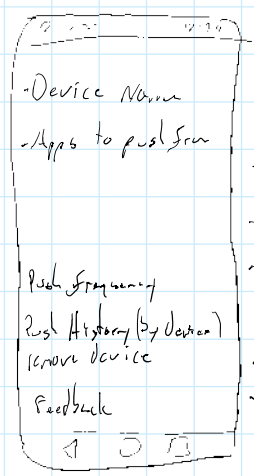 -Device Name
-Apps to push from
Push frequency
Push History (by device)
remove device
Feedback